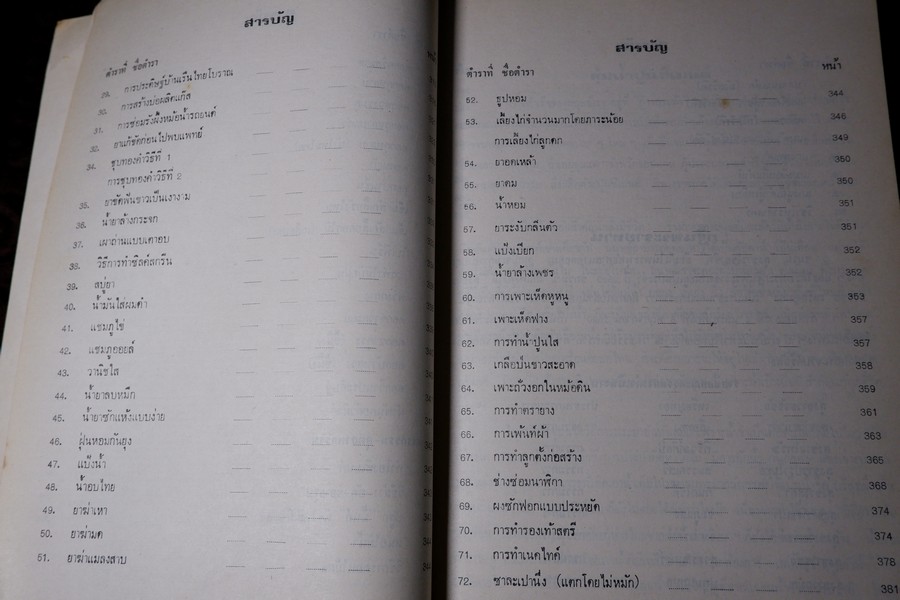 สารบัญ
ตำราที่ ชื่อตำรา
29. การประดิษฐ์บ้านเรือนไทยโบราณ
30. การสร้างบ่อผลิตแก๊ส
31. การซ่อมรังผึ้งหม้อน้ำรถยนต์
32. ยาแก้ขัดก่อนไปพบแพทย์
34. ชุบทองคำวิธีที่ 1
การชุบทองคำวิธีที่ 2
35. ยาขัดฟันขาวเป็นเงางาม
36. น้ำยาล้างกระจก
37. เผาถ่านแบบเตาอบ
38. วิธีการทำซิลค์สกรีน
39. สบู่ยา
40. น้ำมันใส่ผมดำ
41. แชมภูไข่
42. แชมภูออยล์
43. วานิชใส
44. น้ำยาลบหมึก
45. น้ำยาซักแห้งแบบง่าย
46. ฝุ่นหอมกันยุง
47. แป้งน้ำ
48. น้ำอบไทย
49. ยาฆ่าเหา
50. ยาฆ่ามด
51. ยาฆ่าแมลงสาบ
สารบัญ
ตำราที่ ชื่อตำรา หน้า
52. ธูปหอม 344
53. เลี้ยงไก่จำนวนมากโดยภาระน้อย 346
การเลี้ยงไก่ลูกดก 349
54. ยาอดเหล้า 350
55. ยาดม 350
56. น้ำหอม 351
57. ยาระงับกลิ่นตัว 351
58. แป้งเปียก 352
59. น้ำยาล้างเพชร 352
60. การเพาะเห็ดหูหนู 353
61. เพาะเห็ดฟาง 357
62. การทำน้ำปูนใส 357
63. เกลือป่นขาวสะอาด 358
64. เพาะถั่วงอกในหม้อดิน 359
65. การทำตรายาง 361
66. การเพ้นท์ผ้า 363
67. การทำลูกดิ่งก่อสร้าง 365
68. ช่างซ่อมนาฬิกา 368
69. ผงซักฟอกแบบประหยัด 374
70. การทำรองเท้าสตรี 374
71. การทำเนคไทค์ 378
72. ซาละเปานึ่ง (แตกโดยไม่หมัก) 381